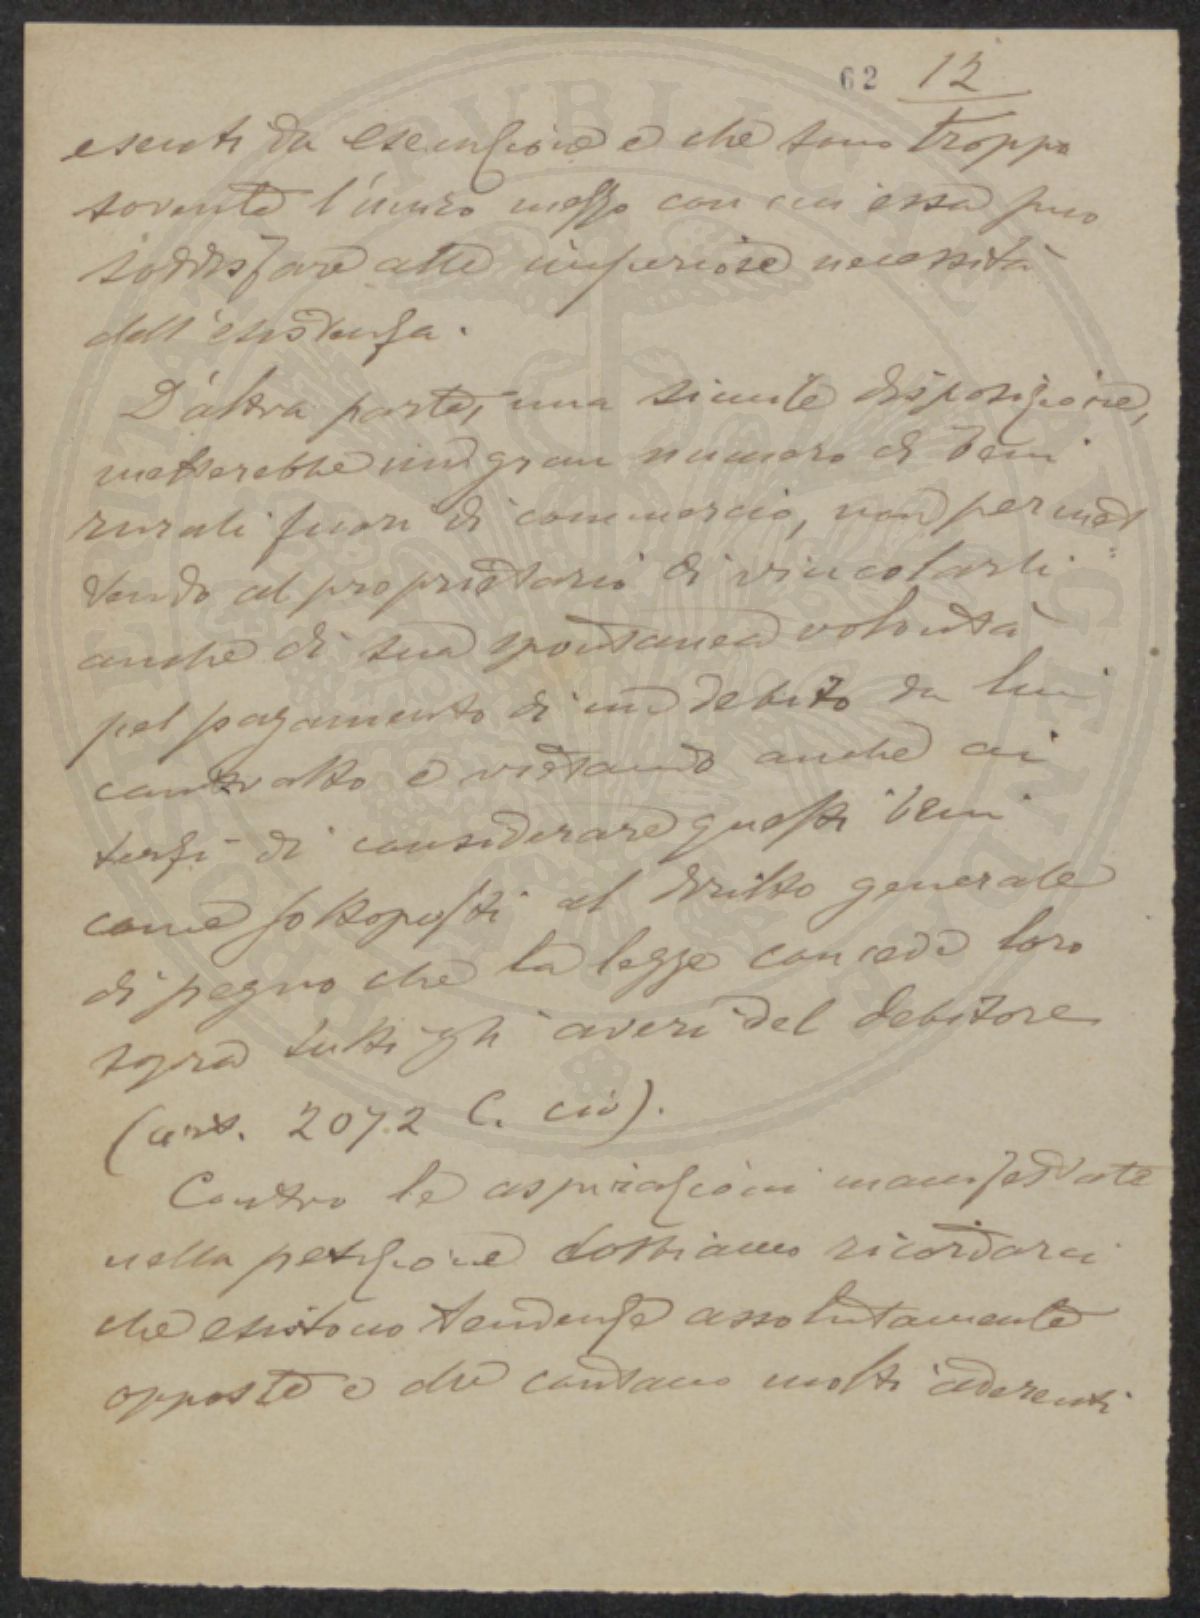 62 12
esenti da esenzione e che sono troppo
sovente l'unico mezzo con cui essa può
soddisfare alle imperiose necessità
dell'esistenza.
D'altra parte, una simile disposizione,
metterebbe un gran numero di beni
rurali fuori di commercio, non permet
tendo al proprietario di vincolarli
anche di sua spontanea volontà
pel pagamento di un debito da lui
contratto e vietando anche ai
terzi di considerare questi beni
come sottoposti al diritto generale
di pegno che la legge concede loro
sopra tutti gli averi del debitore
(art. 2072 C. civ).
Contro le aspirazioni manifestate
nella petizione dobbiamo ricordarci
che esistono tendenze assolutamente
opposte e che contano molti aderenti